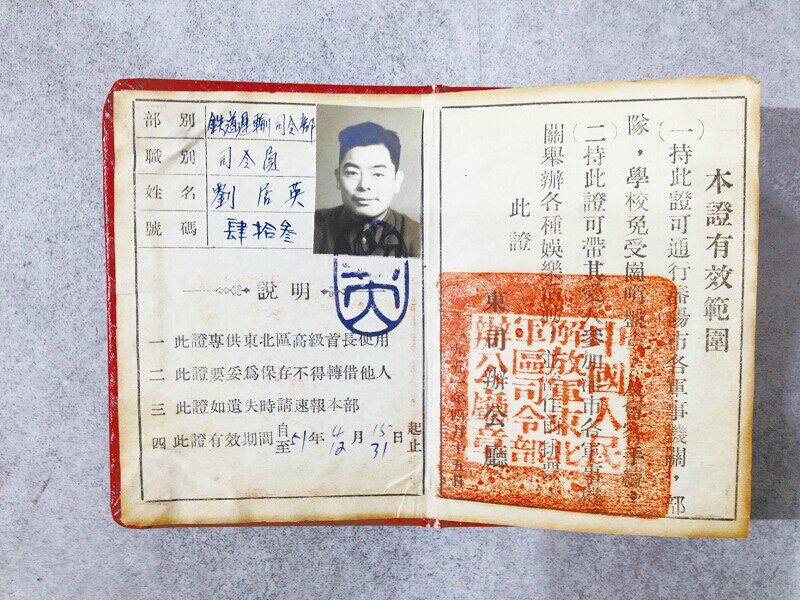 部別 鉄道運輸司令部
職別 司令員
姓名 劉居英
號碼 肆拾叁
說明
一 此證專供東北區高級首長使用
二 此證要妥爲保存不得轉借他人
三 此證如遺失時請速報本部
四 此證有效期間自至51年4 12月15 31日起止
本證有效範圍
(一)持此證可通行瀋陽市各軍事機關，部
隊，學校免受崗哨盤 手續。
(二)持此證可帶其愛人參加 市各軍事機
關舉辦各種娛樂活動
此證
東司辦公廳
年四月十五日
國人民
解放軍東北
軍區司令部
辦公廳